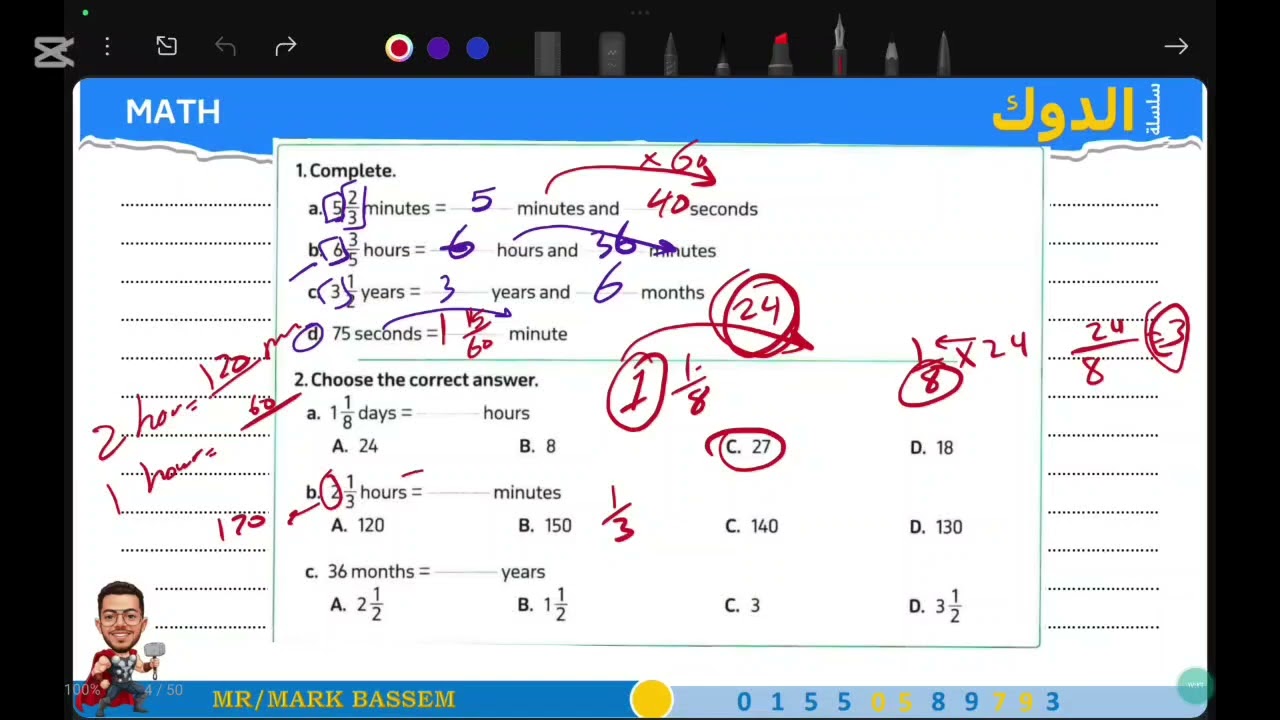 MATH
سلسلة الدوك
1. Complete.
× 60
a. 5 2/3 minutes = 5 minutes and 40 seconds
b. 6 3/5 hours = 6 hours and 36 minutes
c. 3 1/2 years = 3 years and 6 months
24
d. 75 seconds = 1 15/60 minute
1 1/8
1/8 × 24
24/8 = 3
2 hour = 120 m
60
1 hour =
2. Choose the correct answer.
a. 1 1/8 days = hours
A. 24 B. 8 C. 27 D. 18
b. 2 1/3 hours = minutes
120
1/3
A. 120 B. 150 C. 140 D. 130
c. 36 months = years
A. 2 1/2 B. 1 1/2 C. 3 D. 3 1/2
100% 4 / 50
MR/MARK BASSEM
0 1 5 5 0 5 8 9 7 9 3